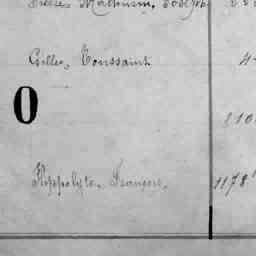 Mathurin, Joseph
Gilles, Toussaint 4
O
110
Hippolyte, François, 1178